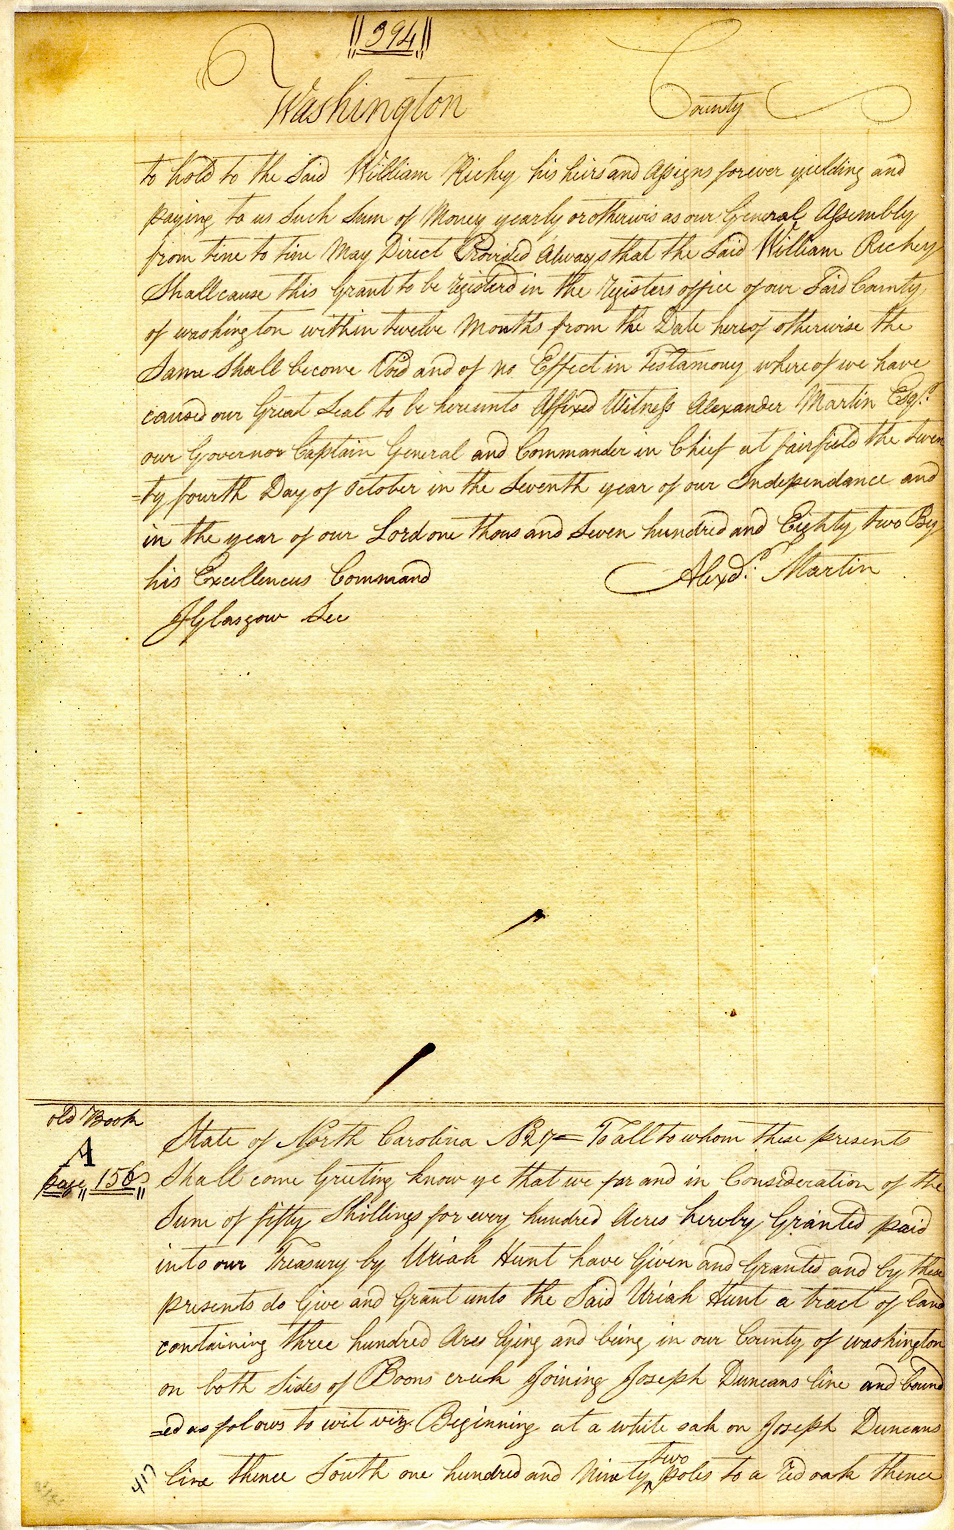 394
Washington County
to hold to the Said William Richey his heirs and Assigns forever yielding and
paying to us Such Sum of Money yearly or otherwis as our General Assembly
from time to time May Direct Provided Always that the Said William Richey
Shall cause this Grant to be registerd in the registers office of our Said County
of washington within twelve Months from the Date hereof otherwise the
Same Shall become Void and of no Effect in Testamony where of we have
caused our Great Seal to be hereunto Affixed Witness Alexander Martin Esqr.
our Governor Captain General and Commander in Chief at fairfield the twen
=ty fourth Day of October in the Seventh year of our Independance and
in the year of our Lord one thousand Seven hundred and Eighty two By
his Excellencus Command Alexd. Martin
JGlasgow Sec
old Book
A
page 156
State of North Carolina No 27 = To all to whom these presents
Shall come Greeting know ye that we for and in Consideration of the
Sum of fifty Shillings for evry hundred Acres hereby Granted paid
into our Treasury by Uriah Hunt have Given and Granted and by these
presents do Give and Grant unto the Said Uriah Hunt a tract of land
containing three hundred Acres lying and being in our County of washington
on both Sides of Boons creek Joining Joseph Duncans line and bound
=ed as folows to wit viz Beginning at a white oak on Joseph Duncans
line thence South one hundred and Ninety two poles to a red oak thence
417